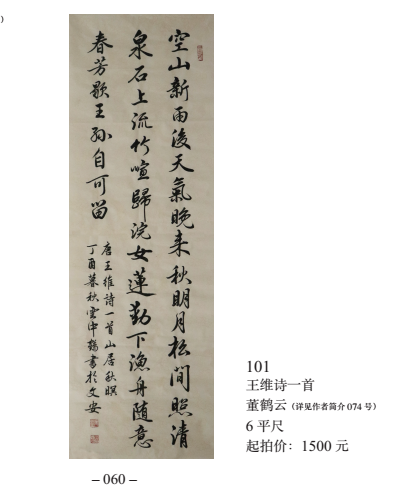 )
空山新雨後天氣晚来秋明月松間照清
泉石上流竹喧歸浣女蓮動下漁舟随意
春芳歇王孙自可留
唐王維詩一首山居秋暝
丁酉暮秋雲中鶴書於文安
101
王维诗一首
董鹤云（详见作者简介 074 号）
6 平尺
起拍价：1500 元
– 060 –